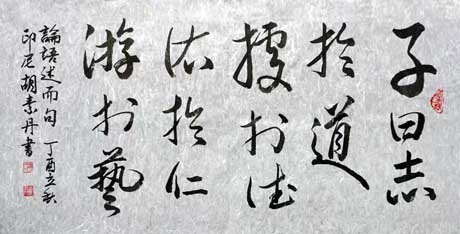 子曰志
於道
據於德
依於仁
游於藝
論語述而句 丁酉立秋
印尼胡素丹書